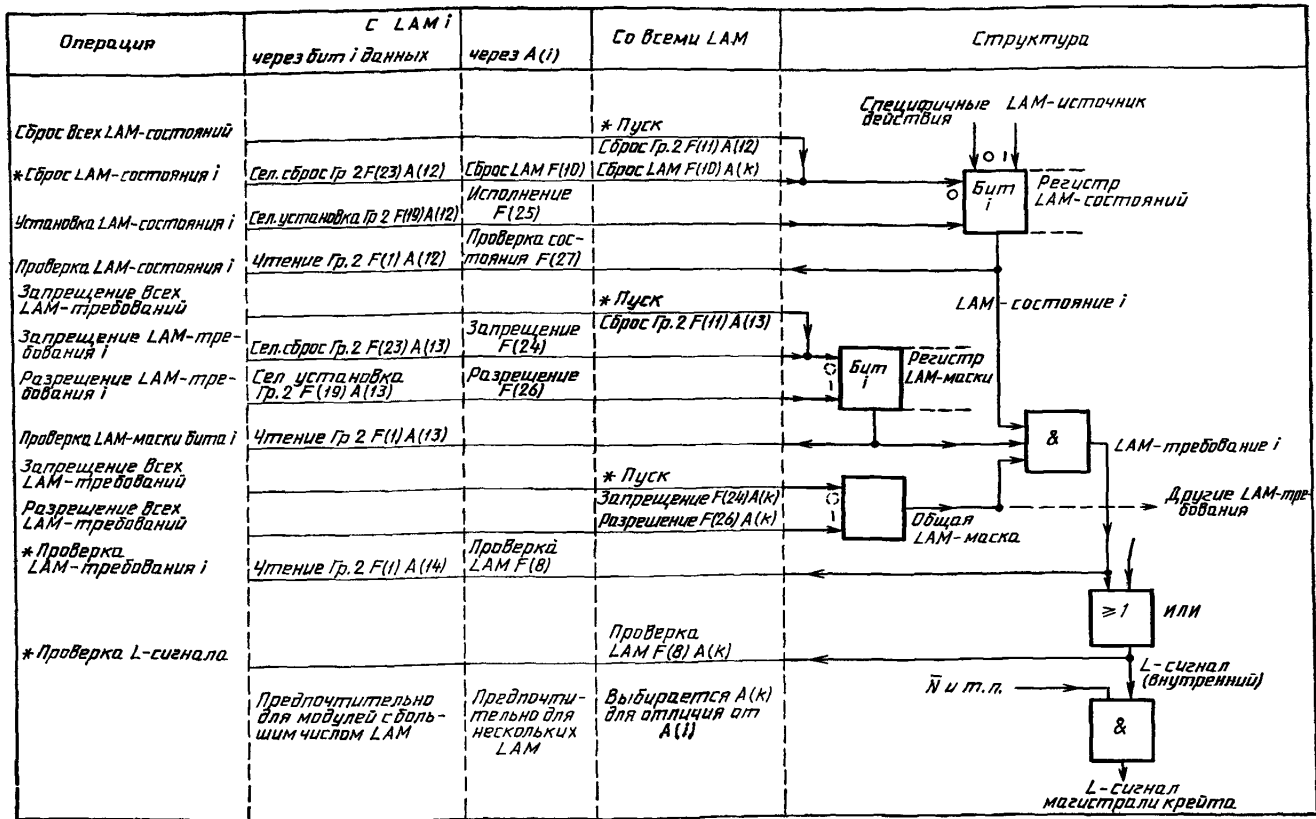 Операция
С LAM i
через бит i данных
через A(i)
Со всеми LAM
Структура
Специфичные действия
LAM-источник
Сброс всех LAM-состояний
* Пуск
Сброс Гр. 2 F(11) A(12)
* Сброс LAM-состояния i
Сел. сброс Гр 2 F(23) A(12)
Сброс LAM F(10)
Сброс LAM F(10) A(k)
0 1
0
Бит i
Регистр
LAM-состояний
Установка LAM-состояния i
Сел. установка Гр 2 F(19) A(12)
Исполнение
F(25)
Проверка LAM-состояния i
Чтение Гр. 2 F(1) A(12)
Проверка сос-
тояния F(27)
LAM-состояние i
Запрещение всех
LAM-требований
* Пуск
Сброс Гр. 2 F(11) A(13)
Запрещение LAM-тре-
бования i
Сел. сброс Гр. 2 F(23) A(13)
Запрещение
F(24)
0
Бит i
Регистр
LAM-маски
Разрешение LAM-тре-
бования i
Сел установка
Гр. 2 F(19) A(13)
Разрешение
F(26)
Проверка LAM-маски бита i
Чтение Гр 2 F(1) A(13)
&
LAM-требование i
Запрещение всех
LAM-требований
* Пуск
Запрещение F(24) A(k)
0
Разрешение всех
LAM-требований
Разрешение F(26) A(k)
Общая
LAM-маска
Другие LAM-тре-
бования
* Проверка
LAM-требования i
Чтение Гр. 2 F(1) A(14)
Проверка
LAM F(8)
≥1
ИЛИ
* Проверка L-сигнала
Проверка
LAM F(8) A(k)
L-сигнал
(внутренний)
N̄ и т.п.
&
Предпочтительно
для модулей с боль-
шим числом LAM
Предпочти-
тельно для
нескольких
LAM
Выбирается A(k)
для отличия от
A(i)
L-сигнал
магистрали крейта